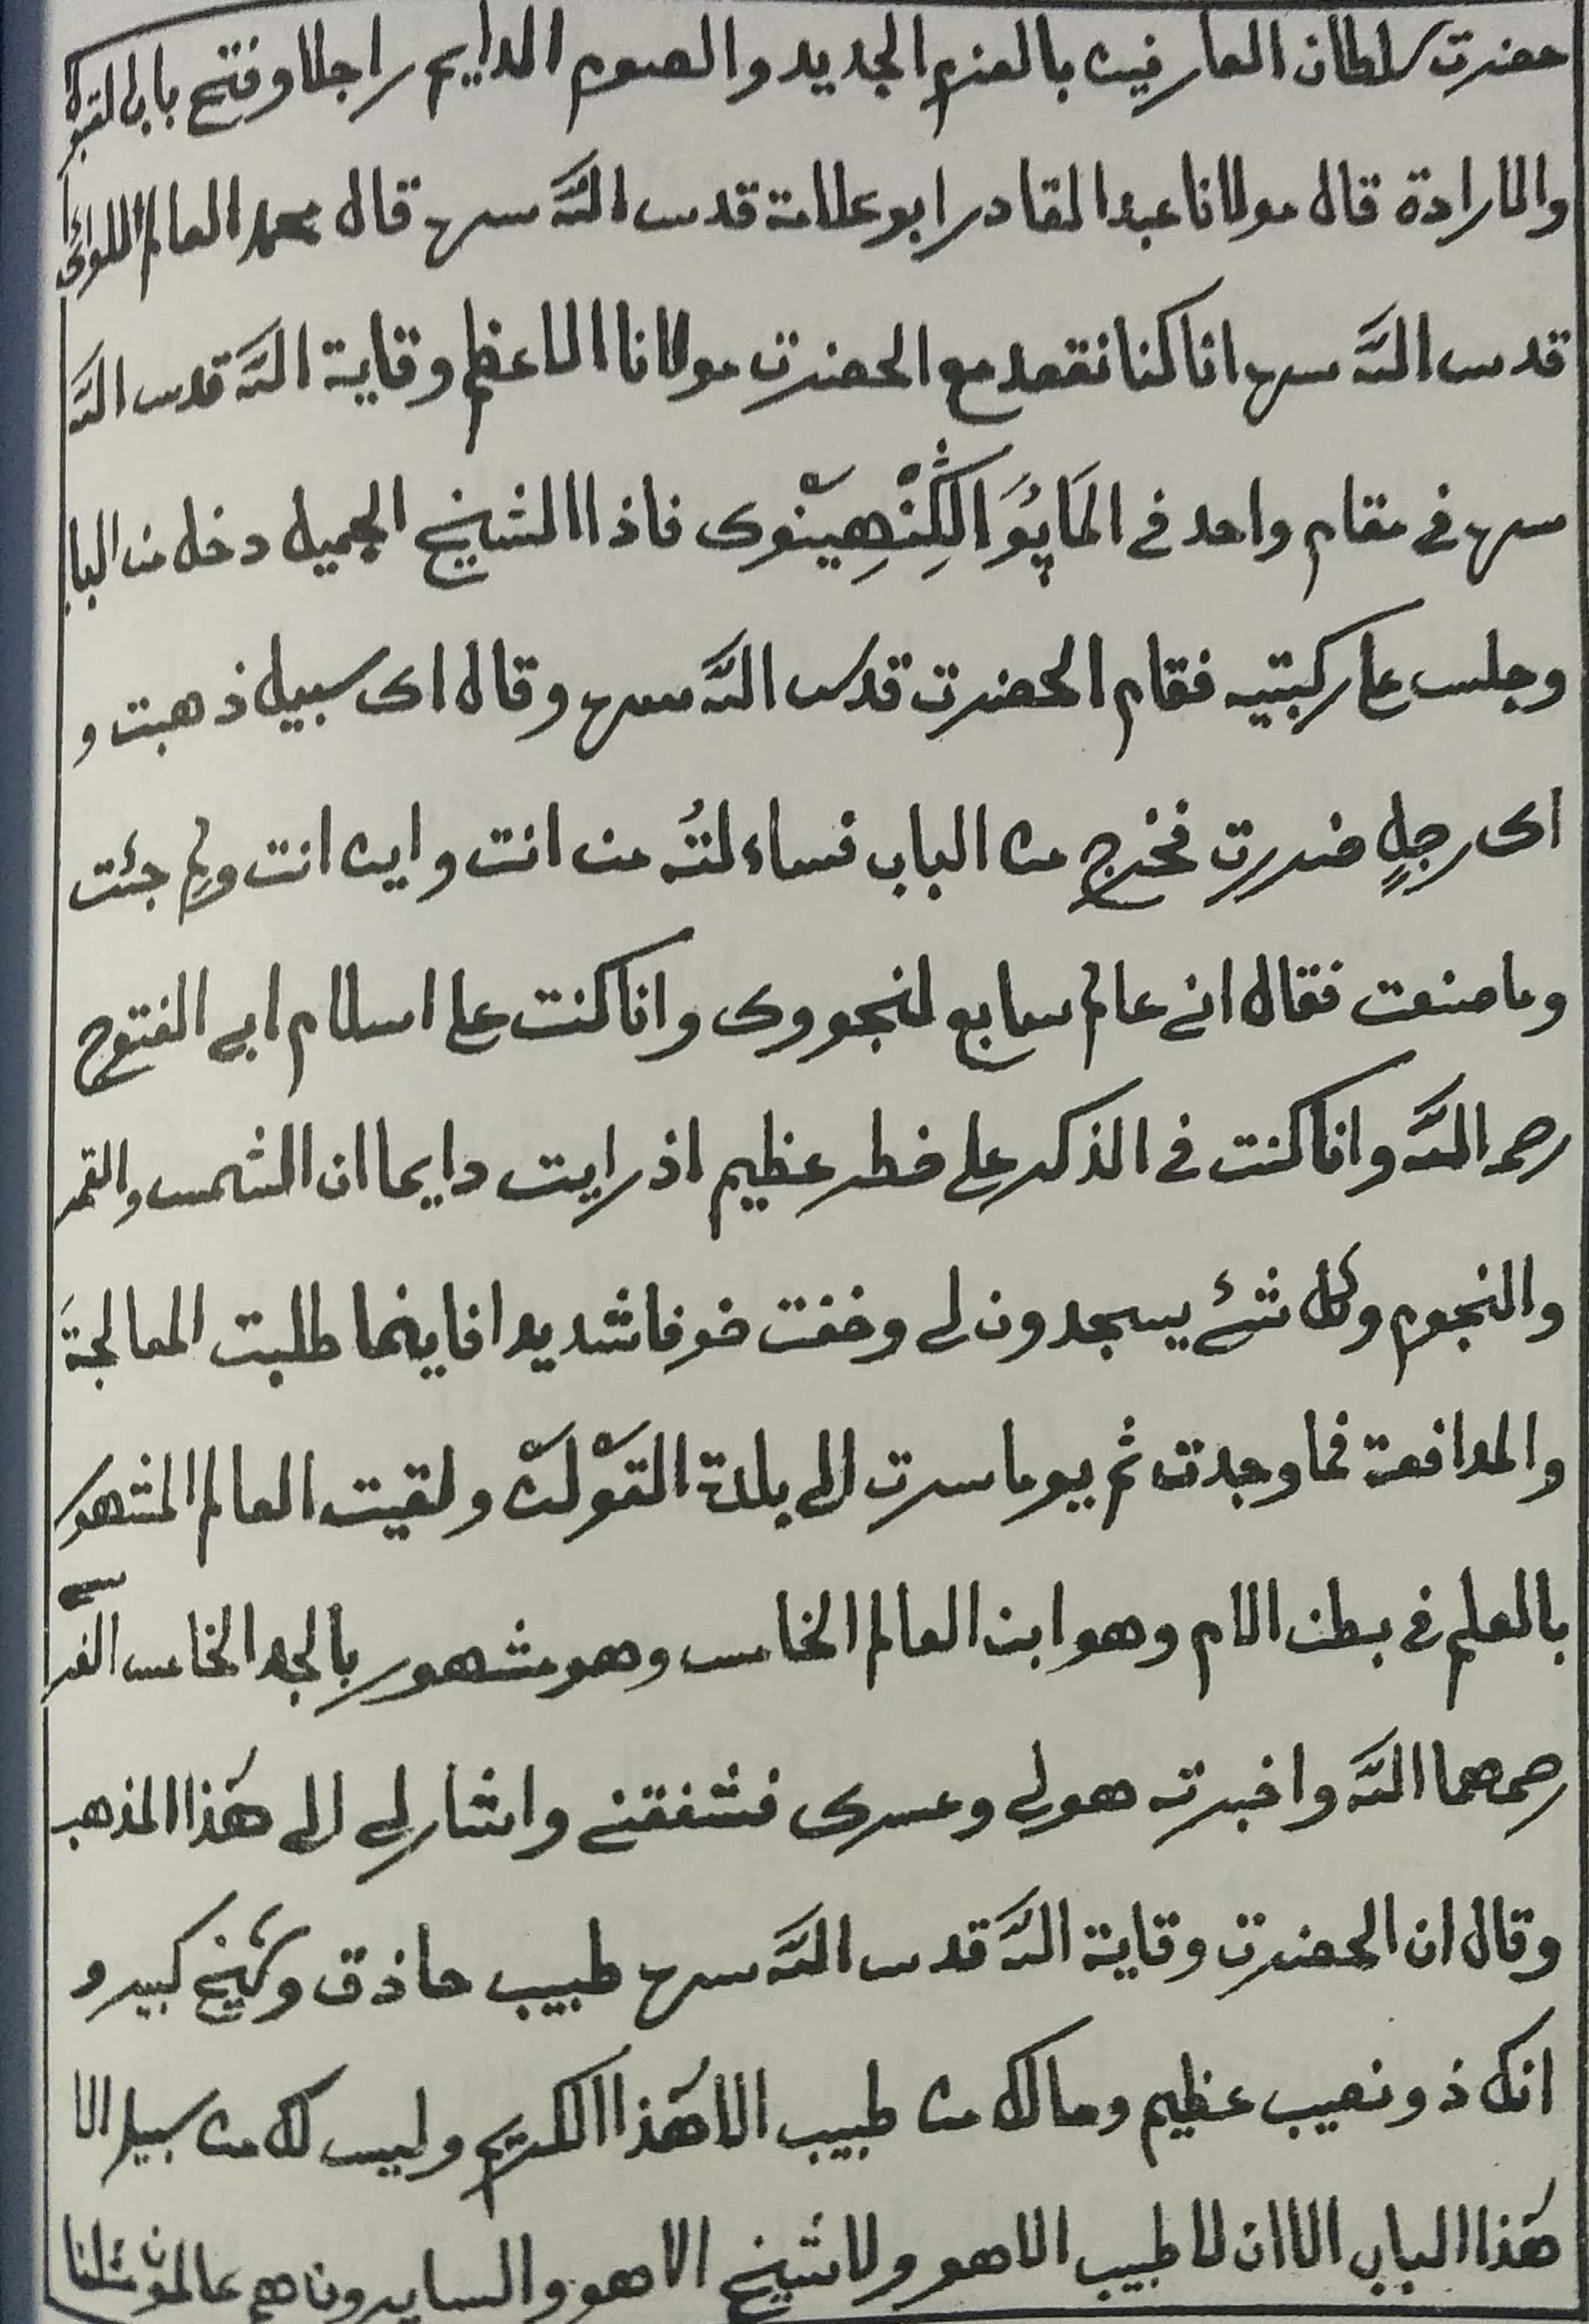 حضرت سلطان العارفين بالعزم الجديد والصوم الدايم راجلا وفتح باب التبرك
والارادة قال مولانا عبد القادر ابو علامة قدس الله سره قال محمد العالم
قدس الله سره انا كنا نقعد مع الحضرت مولانا الاعظم وقاية الله قدس الله
سره في مقام واحد في فاذا الشيخ الجميل دخل من البا
وجلس على ركبتيه فقام الحضرت قدس الله سره وقال اى سبيل ذهبت و
اى رجلٍ ضررت فخرج من الباب فساءلتُه من انت واين انت ولِم جئت
وما صنعت فقال اني عالم سابع لنجووى وانا كنت على اسلام ابي الفتوح
رحمه الله وانا كنت في الذكر على خطر عظيم اذ رايت دايما ان الشمس والقمر
والنجوم وكل شئ يسجدون لي وخفت خوفا شديدا فاينما طلبت المعالجةَ
والمدافعة فما وجدت ثم يوما سرت الى بلدة ولقيت العالم المشهور
بالعلم في بطن الام وهو ابن العالم الخامس وهو مشهور بالجد الخامس
رحمهما الله واخبرته هولي وعسرى فشفقني واشار لي الى هٰذا المذهب
وقال ان الحضرت وقاية الله قدس الله سره طبيب حاذق وشيخ كبير و
انك ذو نصيب عظيم وما لك من طبيب الا هٰذا الكريم وليس لك من سبيل الا
هٰذا الباب الا ان لا طبيب الا هو ولا شيخ الا هو والسايرون هم عالمون مثلنا